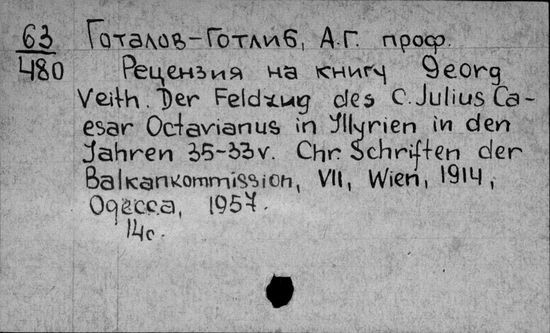 63 Готалов-Готлиб, А.Г. проф.
480 Рецензия на книгу Georg
Veith. Der Feldzug des C. Julius Ca-
esar Octavianus in Illyrien in den
Jahren 35-33 v. Chr. Schriften der
Balkankommission, VII, Wien, 1914,
Одесса, 1957.
14с.